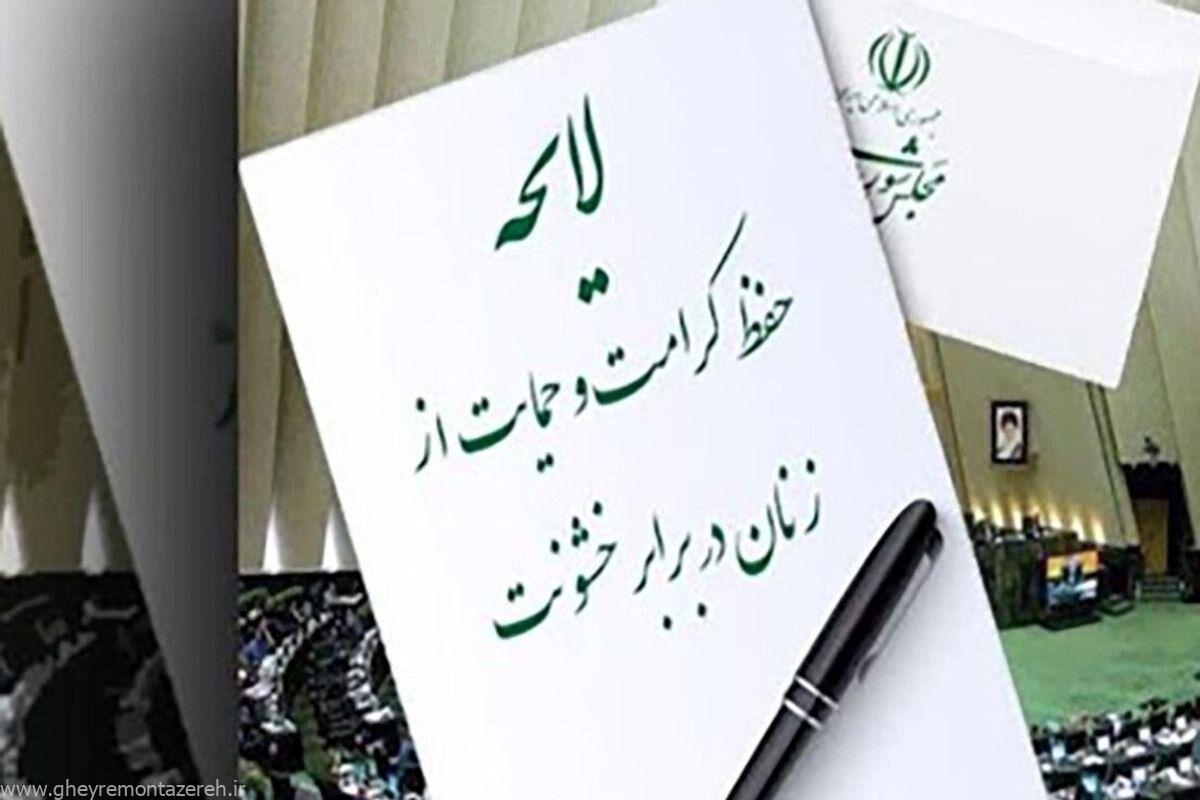 لایحه
حفظ کرامت و حمایت از
زنان در برابر خشونت
جمهوری اسلامی
مجلس شور
www.gheyremontazereh.ir